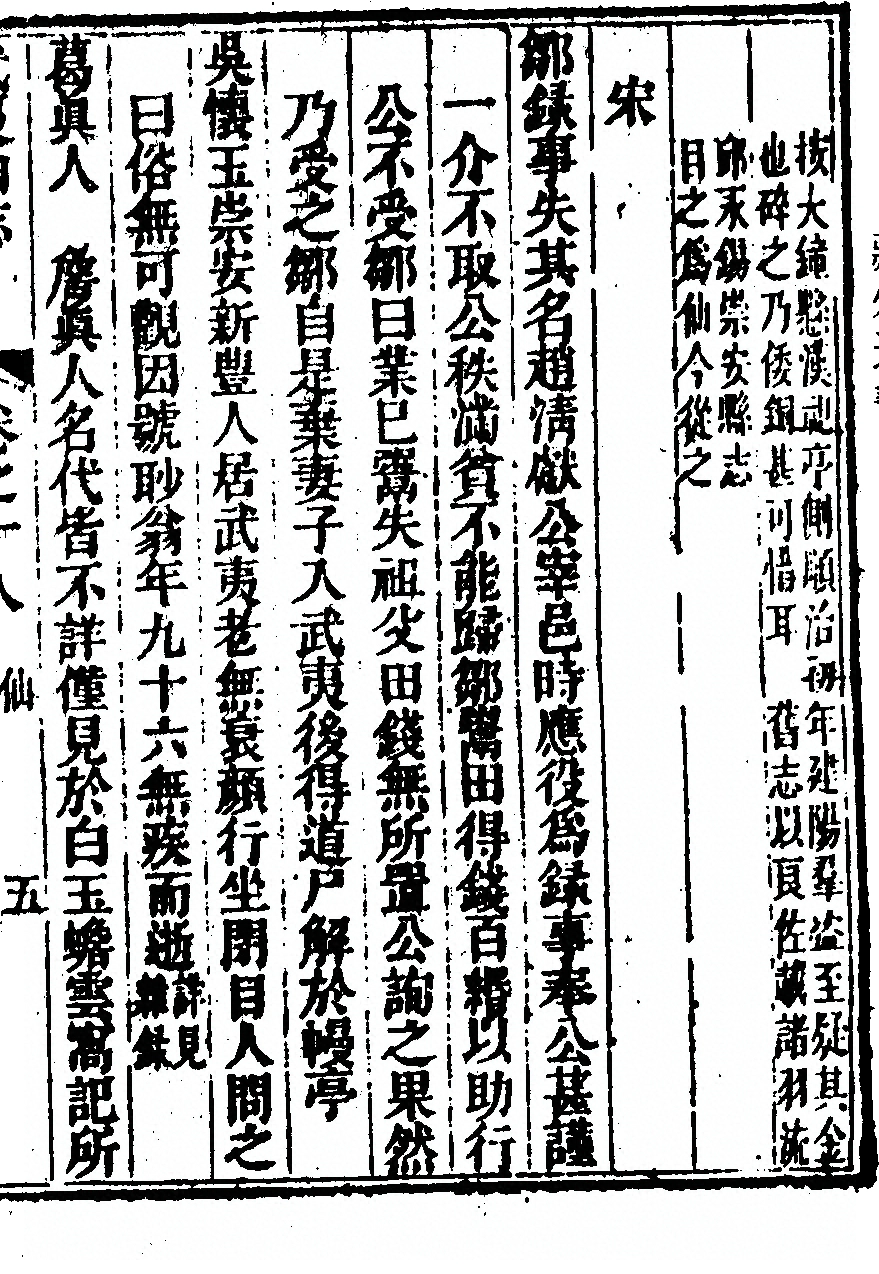 按大鐘懸漢祀亭側順治初年建陽羣盜至疑其金
也碎之乃倭銅甚可惜耳　舊志以良佐載諸羽流
邱永錫崇安縣志
目之爲仙今從之
宋
鄒錄事失其名趙淸獻公宰邑時應役爲錄事奉公甚謹
一介不取公秩滿貧不能歸鄒鬻田得錢百緡以助行
公不受鄒曰業已鬻失祖父田錢無所置公詢之果然
乃受之鄒自是棄妻子入武夷後得道尸解於幔亭
吳懷玉崇安新豐人居武夷老無衰顏行坐閉目人問之
曰俗無可觀因號眇翁年九十六無疾而逝詳見
雜錄
葛眞人　詹眞人名代皆不詳僅見於白玉蟾雲窩記所
卷之十八　仙　五